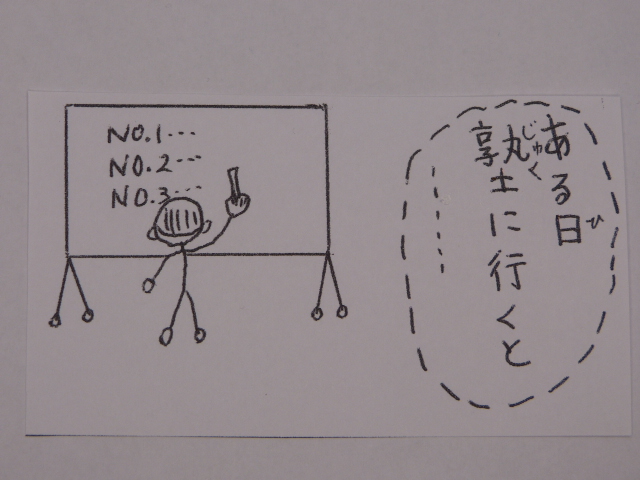 NO.1…
NO.2…
NO.3…
ある日
ひ
塾に行くと
じゅく
……